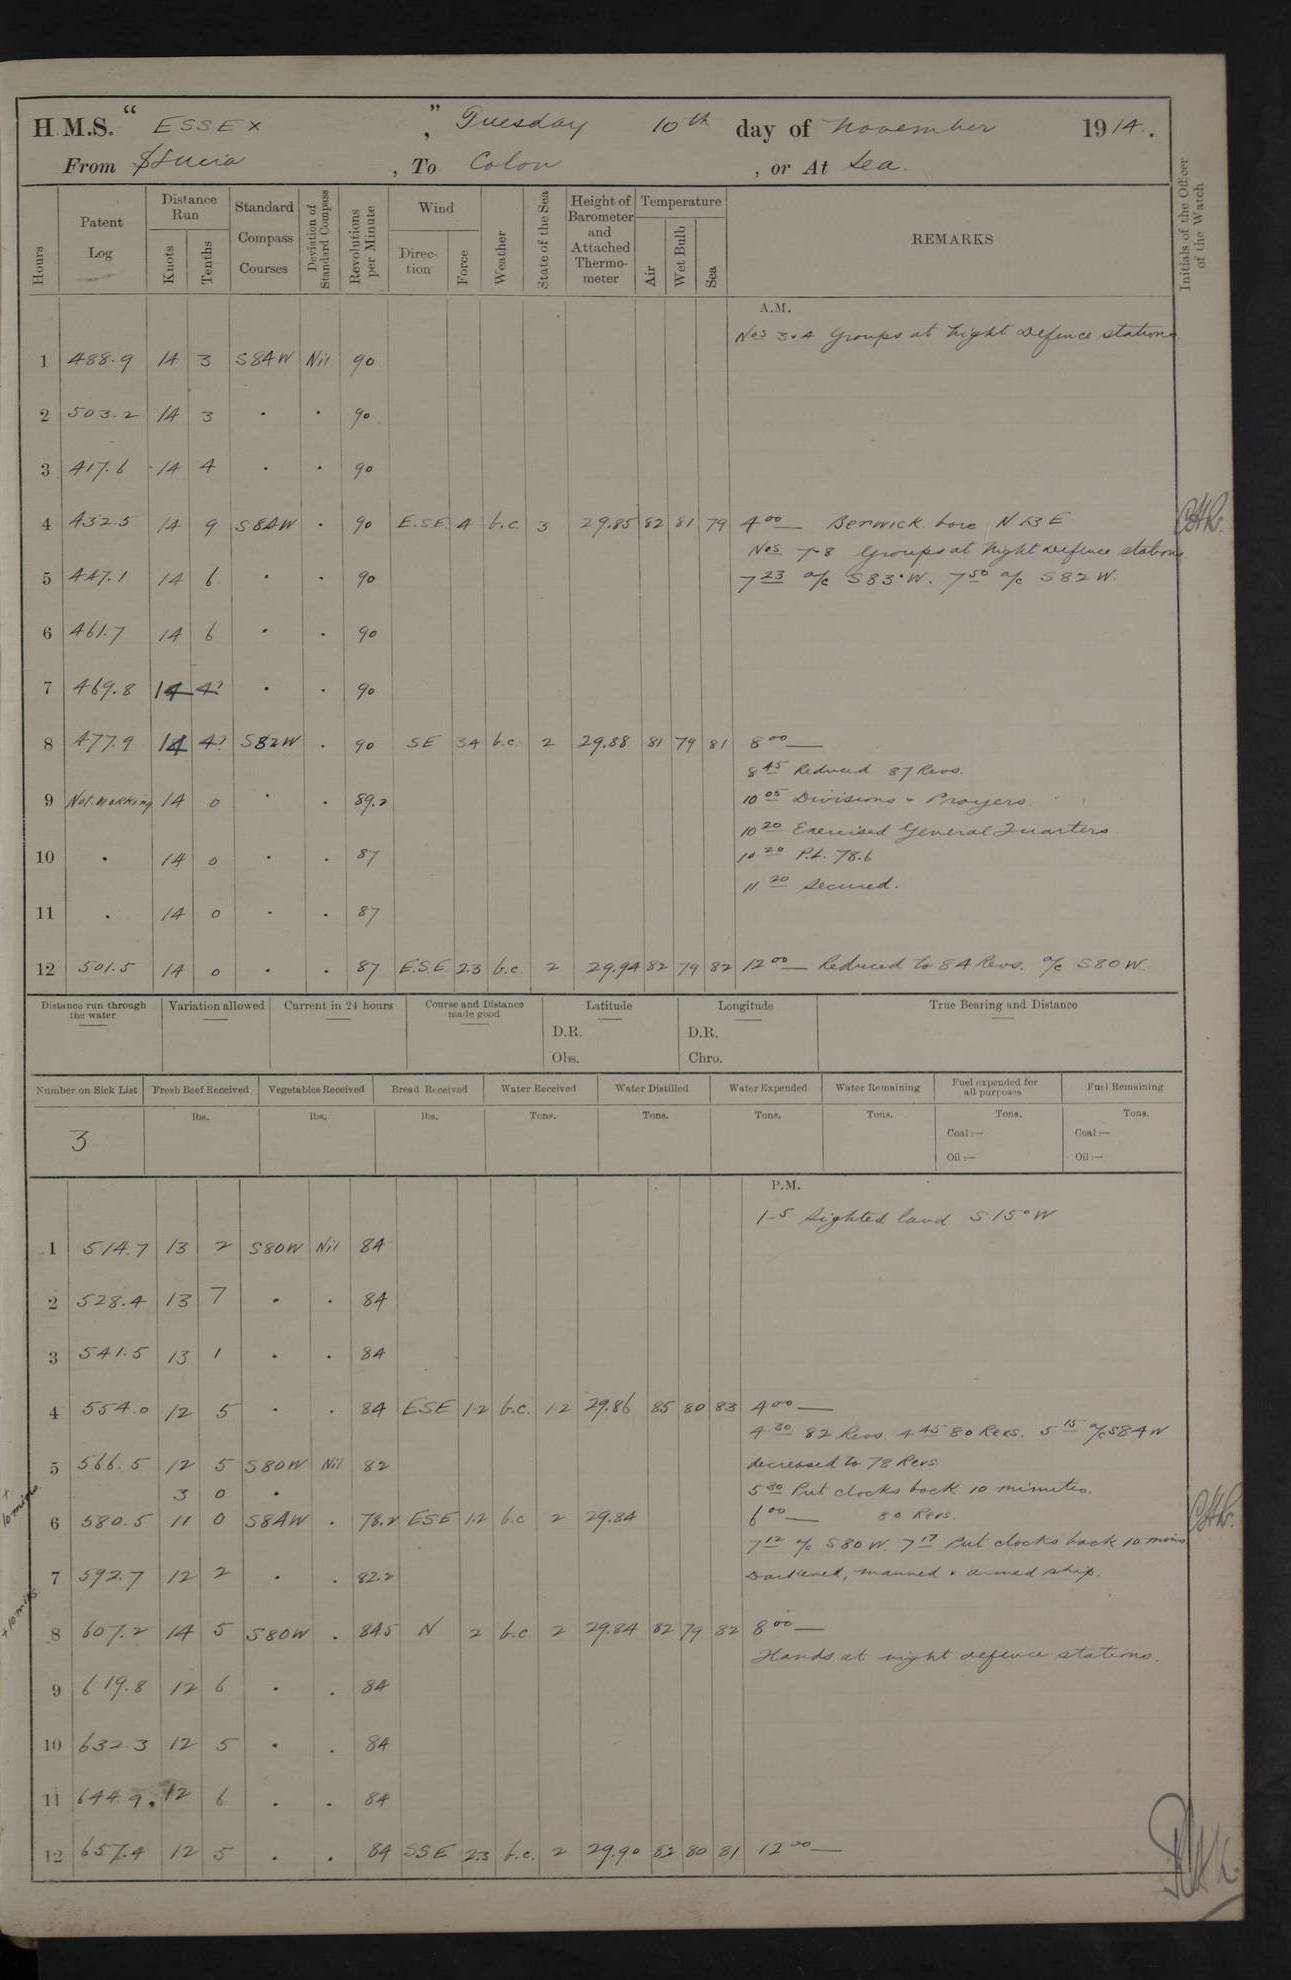 H.M.S. “ ESSEX ”, Tuesday 10th day of November 1914.
From St Lucia , To Colon , or At Sea.
Hours
Patent Log
Distance Run
Knots
Tenths
Standard Compass Courses
Deviation of Standard Compass
Revolutions per Minute
Wind
Direction
Force
Weather
State of the Sea
Height of Barometer and Attached Thermometer
Temperature
Air
Wet Bulb
Sea
REMARKS
Initials of the Officer of the Watch
A.M.
Nos 3 & 4 Groups at Night Defence Stations
1 488.9 14 3 S84W Nil 90
2 503.2 14 3 . . 90
3 417.6 14 4 . . 90
4 432.5 14 9 S84W . 90 E.S.E. 4 b.c 3 29.85 82 81 79 4 00 — Berwick bore N 13 E
Nos 7-8 Groups at Night Defence Stations
5 447.1 14 6 . . 90 7 23 a/c S83°W. 7 50 a/c S82W.
6 461.7 14 6 . . 90
7 469.8 14 4? . . 90
8 477.9 14 4? S82W . 90 SE 34 b.c. 2 29.88 81 79 81 8 00 —
8 45 Reduced 87 Revs.
9 Not Working 14 0 . . 89.2 10 05 Divisions & Prayers.
10 20 Exercised General Quarters
10 . 14 0 . . 87 10 20 P.L. 78.6
11 20 Secured.
11 . 14 0 . . 87
12 501.5 14 0 . . 87 E.S.E. 2.3 b.c. 2 29.94 82 79 82 12 00 — Reduced to 84 Revs. a/c S80W.
Distance run through the water
Variation allowed
Current in 24 hours
Course and Distance made good
Latitude
D.R.
Obs.
Longitude
D.R.
Chro.
True Bearing and Distance
Number on Sick List
Fresh Beef Received
Vegetables Received
Bread Received
Water Received
Water Distilled
Water Expended
Water Remaining
Fuel expended for all purposes
Fuel Remaining
lbs. lbs. lbs. Tons. Tons. Tons. Tons. Tons. Tons.
3
Coal:— Coal:—
Oil:— Oil:—
P.M.
1-5 Sighted land S15°W
1 514.7 13 2 S80W Nil 84
2 528.4 13 7 . . 84
3 541.5 13 1 . . 84
4 554.0 12 5 . . 84 ESE 1.2 b.c. 12 29.86 85 80 83 4 00 —
4 30 82 Revs. 4 45 80 Revs. 5 15 a/c S84W
5 566.5 12 5 S80W Nil 82 decreased to 78 Revs
3 0 . 5 30 Put clocks back 10 minutes.
+ 10 mins
6 580.5 11 0 S84W . 78.2 ESE 1.2 b.c 2 29.84 6 00 — 80 Revs.
7 12 a/c S80W. 7 17 Put clocks back 10 mins
7 592.7 12 2 . . 82.2 Darkened, manned & armed ship.
+10 mins.
8 607.2 14 5 S80W . 84.5 N 2 b.c 2 29.84 82 79 82 8 00 —
Hands at night defence stations.
9 619.8 12 6 . . 84
10 632.3 12 5 . . 84
11 644.9 12 6 . . 84
12 657.4 12 5 . . 84 SSE 2.3 b.c. 2 29.90 82 80 81 12 00 —